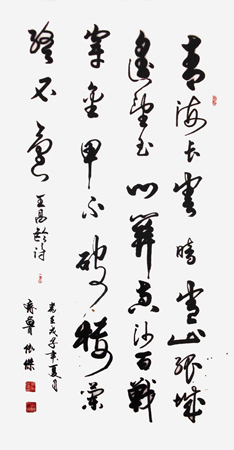 青海长雲暗雪山孤城
遥望玉门關黄沙百戰
穿金甲不破楼蘭
终不還 王昌齡诗
岁在戊子年夏月
齊魯